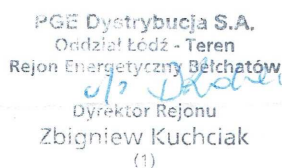 PGE Dystrybucja S.A.
Oddział Łódź - Teren
Rejon Energetyczny Bełchatów
Dyrektor Rejonu
Zbigniew Kuchciak
(1)